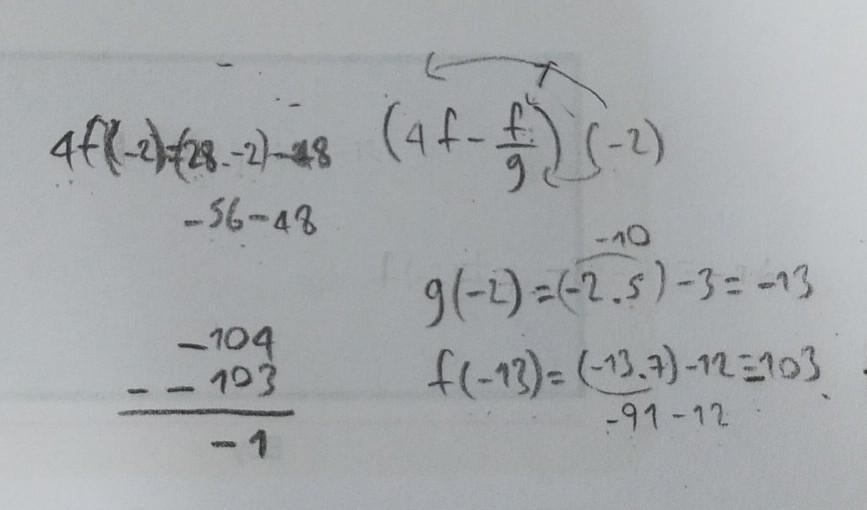 4f(-2)=(28.-2)-48
-56-48
-104
- - 103
-1
(4f - f/g) (-2)
-10
g(-2) = (-2.5) -3 = -13
f(-13) = (-13.7) -12 = -103
-91 -12